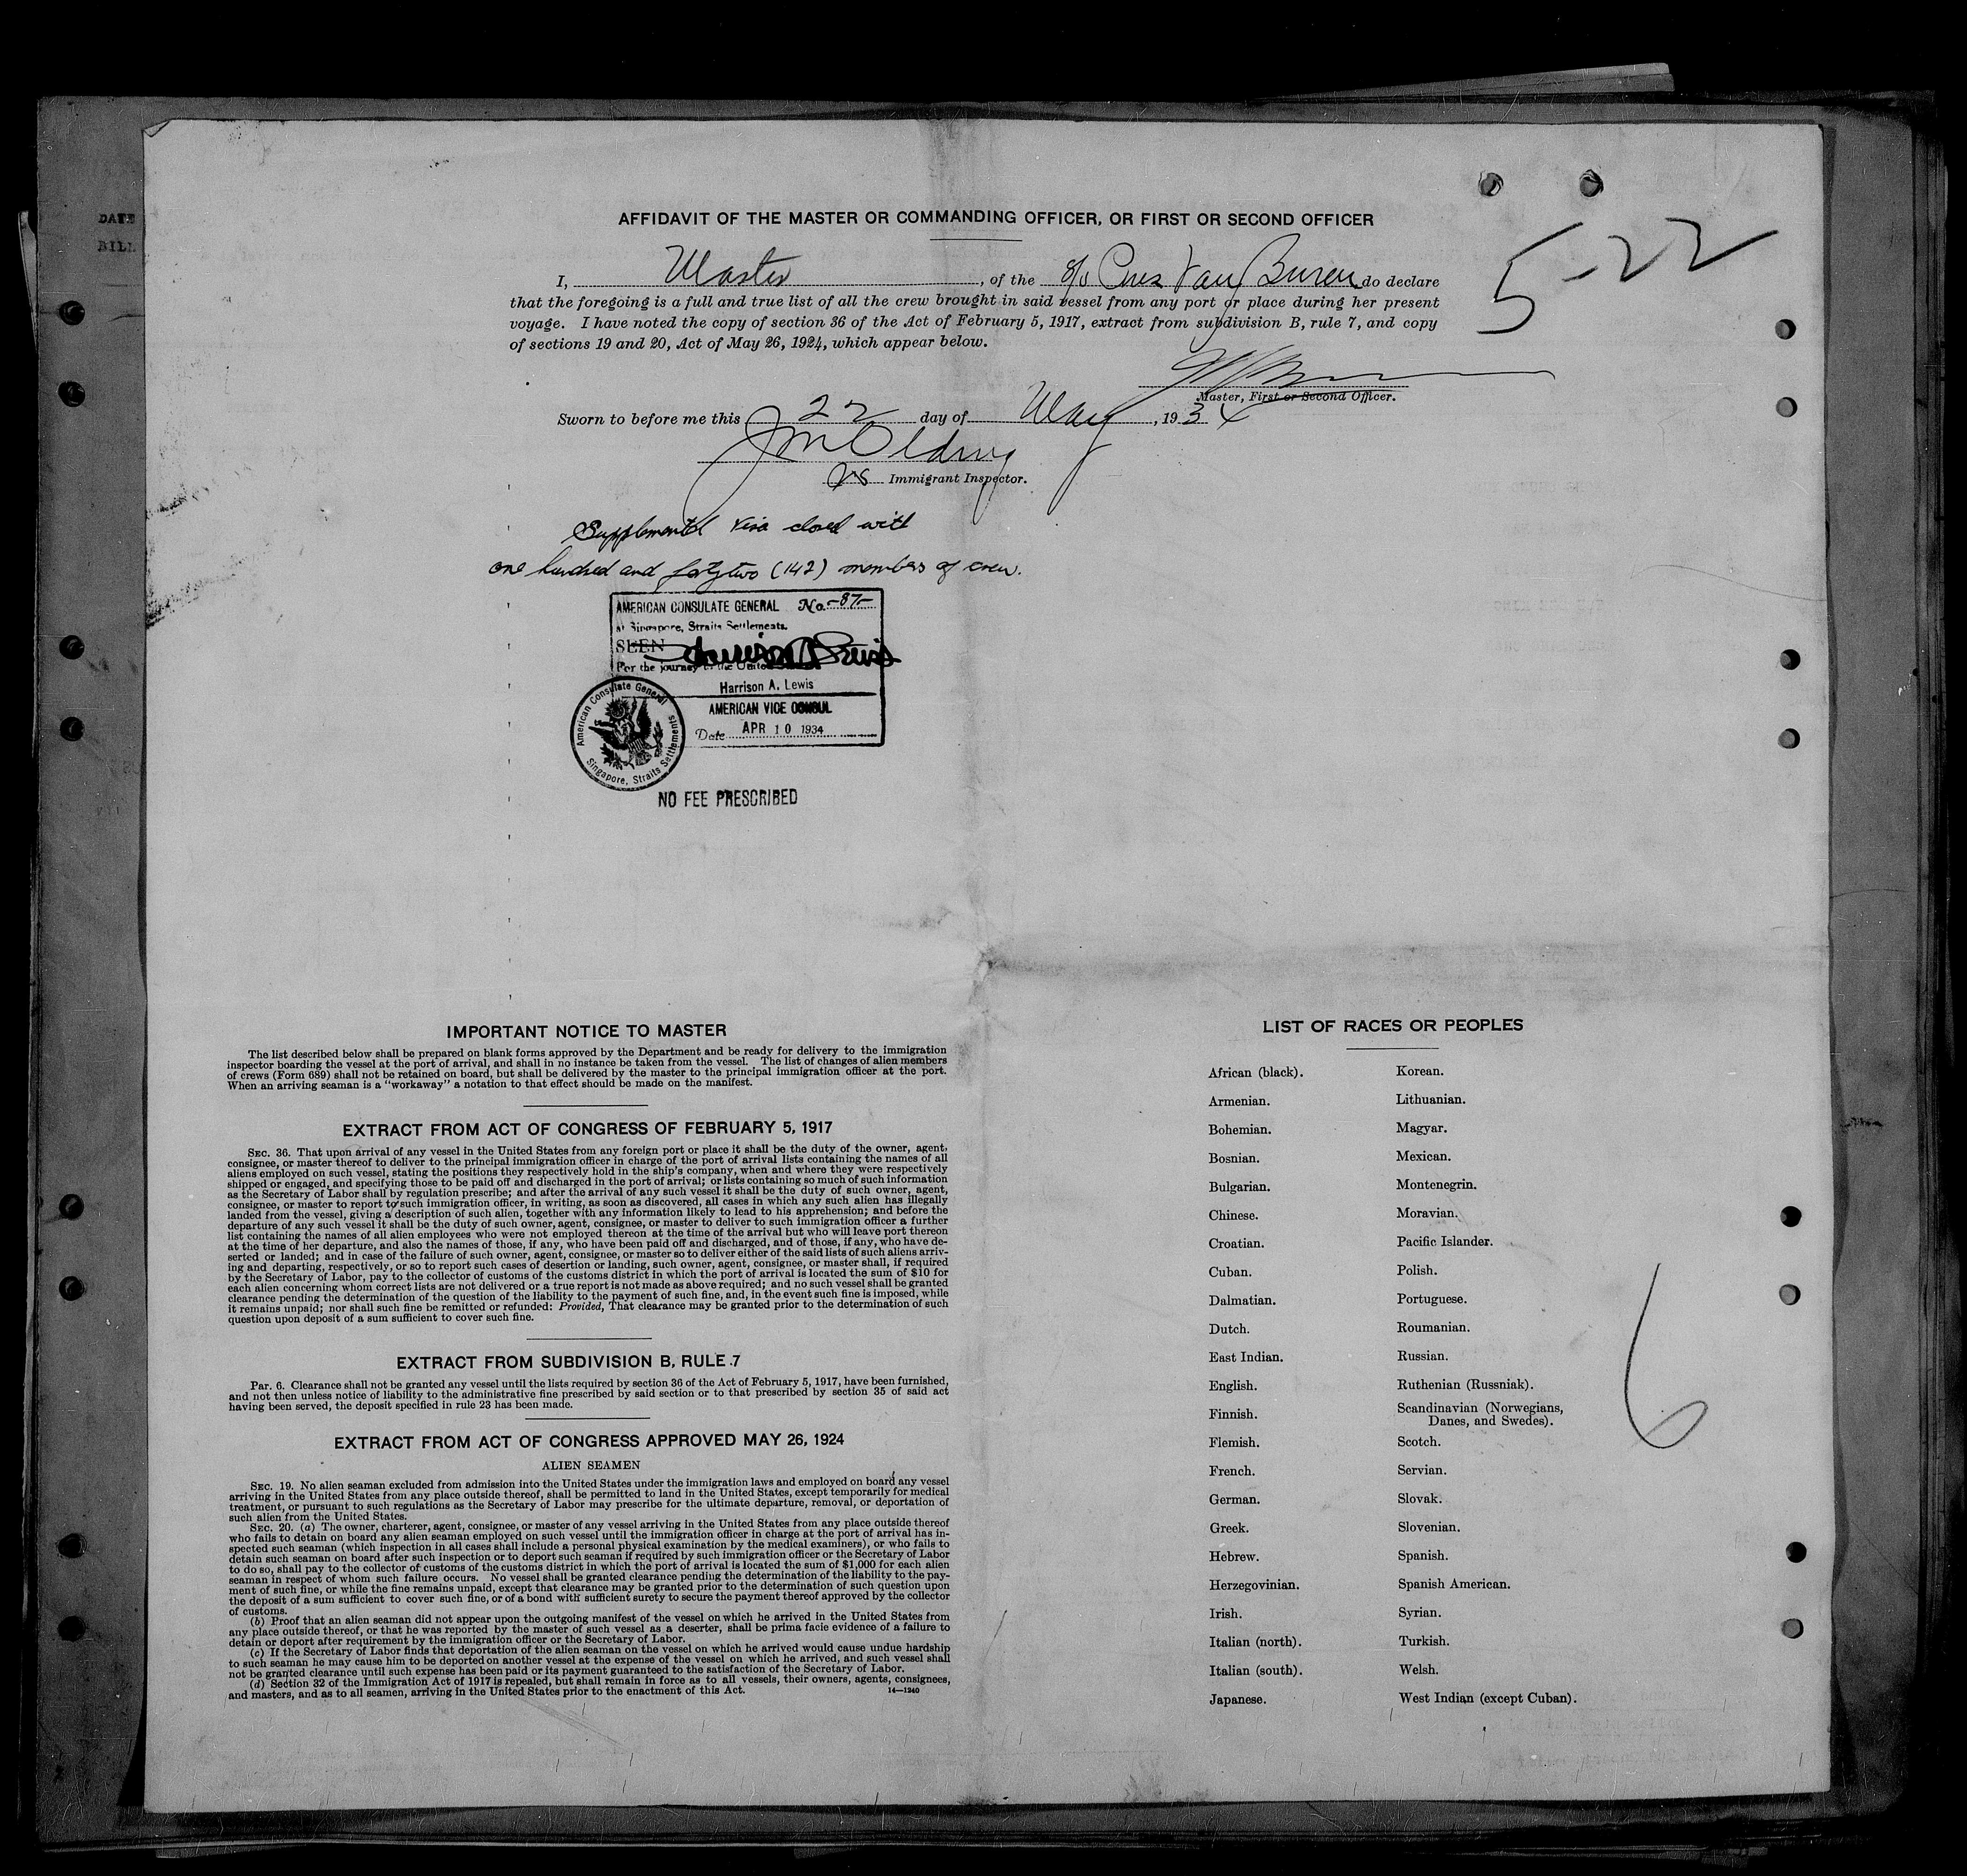 DATE
BILL
AFFIDAVIT OF THE MASTER OR COMMANDING OFFICER, OR FIRST OR SECOND OFFICER
5-22
I, Master, of the S/S Pres Van Buren do declare
that the foregoing is a full and true list of all the crew brought in said vessel from any port or place during her present
voyage. I have noted the copy of section 36 of the Act of February 5, 1917, extract from subdivision B, rule 7, and copy
of sections 19 and 20, Act of May 26, 1924, which appear below.
Master, First or Second Officer.
Sworn to before me this 22 day of May, 1934
Immigrant Inspector.
Supplemental visa closed with
one hundred and forty two (142) members of crew.
AMERICAN CONSULATE GENERAL No. -87-
at Singapore, Straits Settlements.
SEEN
For the journey to the United
Harrison A. Lewis
AMERICAN VICE CONSUL
Date APR 10 1934
American Consulate General
Singapore, Straits Settlements
NO FEE PRESCRIBED
IMPORTANT NOTICE TO MASTER
The list described below shall be prepared on blank forms approved by the Department and be ready for delivery to the immigration
inspector boarding the vessel at the port of arrival, and shall in no instance be taken from the vessel. The list of changes of alien members
of crews (Form 689) shall not be retained on board, but shall be delivered by the master to the principal immigration officer at the port.
When an arriving seaman is a "workaway" a notation to that effect should be made on the manifest.
EXTRACT FROM ACT OF CONGRESS OF FEBRUARY 5, 1917
SEC. 36. That upon arrival of any vessel in the United States from any foreign port or place it shall be the duty of the owner, agent,
consignee, or master thereof to deliver to the principal immigration officer in charge of the port of arrival lists containing the names of all
aliens employed on such vessel, stating the positions they respectively hold in the ship's company, when and where they were respectively
shipped or engaged, and specifying those to be paid off and discharged in the port of arrival; or lists containing so much of such information
as the Secretary of Labor shall by regulation prescribe; and after the arrival of any such vessel it shall be the duty of such owner, agent,
consignee, or master to report to such immigration officer, in writing, as soon as discovered, all cases in which any such alien has illegally
landed from the vessel, giving a description of such alien, together with any information likely to lead to his apprehension; and before the
departure of any such vessel it shall be the duty of such owner, agent, consignee, or master to deliver to such immigration officer a further
list containing the names of all alien employees who were not employed thereon at the time of the arrival but who will leave port thereon
at the time of her departure, and also the names of those, if any, who have been paid off and discharged, and of those, if any, who have de-
serted or landed; and in case of the failure of such owner, agent, consignee, or master so to deliver either of the said lists of such aliens arriv-
ing and departing, respectively, or so to report such cases of desertion or landing, such owner, agent, consignee, or master shall, if required
by the Secretary of Labor, pay to the collector of customs of the customs district in which the port of arrival is located the sum of $10 for
each alien concerning whom correct lists are not delivered or a true report is not made as above required; and no such vessel shall be granted
clearance pending the determination of the question of the liability to the payment of such fine, and, in the event such fine is imposed, while
it remains unpaid; nor shall such fine be remitted or refunded: Provided, That clearance may be granted prior to the determination of such
question upon deposit of a sum sufficient to cover such fine.
EXTRACT FROM SUBDIVISION B, RULE 7
Par. 6. Clearance shall not be granted any vessel until the lists required by section 36 of the Act of February 5, 1917, have been furnished,
and not then unless notice of liability to the administrative fine prescribed by said section or to that prescribed by section 35 of said act
having been served, the deposit specified in rule 23 has been made.
EXTRACT FROM ACT OF CONGRESS APPROVED MAY 26, 1924
ALIEN SEAMEN
SEC. 19. No alien seaman excluded from admission into the United States under the immigration laws and employed on board any vessel
arriving in the United States from any place outside thereof, shall be permitted to land in the United States, except temporarily for medical
treatment, or pursuant to such regulations as the Secretary of Labor may prescribe for the ultimate departure, removal, or deportation of
such alien from the United States.
SEC. 20. (a) The owner, charterer, agent, consignee, or master of any vessel arriving in the United States from any place outside thereof
who fails to detain on board any alien seaman employed on such vessel until the immigration officer in charge at the port of arrival has in-
spected such seaman (which inspection in all cases shall include a personal physical examination by the medical examiners), or who fails to
detain such seaman on board after such inspection or to deport such seaman if required by such immigration officer or the Secretary of Labor
to do so, shall pay to the collector of customs of the customs district in which the port of arrival is located the sum of $1,000 for each alien
seaman in respect of whom such failure occurs. No vessel shall be granted clearance pending the determination of the liability to the pay-
ment of such fine, or while the fine remains unpaid, except that clearance may be granted prior to the determination of such question upon
the deposit of a sum sufficient to cover such fine, or of a bond with sufficient surety to secure the payment thereof approved by the collector
of customs.
(b) Proof that an alien seaman did not appear upon the outgoing manifest of the vessel on which he arrived in the United States from
any place outside thereof, or that he was reported by the master of such vessel as a deserter, shall be prima facie evidence of a failure to
detain or deport after requirement by the immigration officer or the Secretary of Labor.
(c) If the Secretary of Labor finds that deportation of the alien seaman on the vessel on which he arrived would cause undue hardship
to such seaman he may cause him to be deported on another vessel at the expense of the vessel on which he arrived, and such vessel shall
not be granted clearance until such expense has been paid or its payment guaranteed to the satisfaction of the Secretary of Labor.
(d) Section 32 of the Immigration Act of 1917 is repealed, but shall remain in force as to all vessels, their owners, agents, consignees,
and masters, and as to all seamen, arriving in the United States prior to the enactment of this Act.
14—1240
LIST OF RACES OR PEOPLES
African (black).
Armenian.
Bohemian.
Bosnian.
Bulgarian.
Chinese.
Croatian.
Cuban.
Dalmatian.
Dutch.
East Indian.
English.
Finnish.
Flemish.
French.
German.
Greek.
Hebrew.
Herzegovinian.
Irish.
Italian (north).
Italian (south).
Japanese.
Korean.
Lithuanian.
Magyar.
Mexican.
Montenegrin.
Moravian.
Pacific Islander.
Polish.
Portuguese.
Roumanian.
Russian.
Ruthenian (Russniak).
Scandinavian (Norwegians,
Danes, and Swedes).
Scotch.
Servian.
Slovak.
Slovenian.
Spanish.
Spanish American.
Syrian.
Turkish.
Welsh.
West Indian (except Cuban).
6